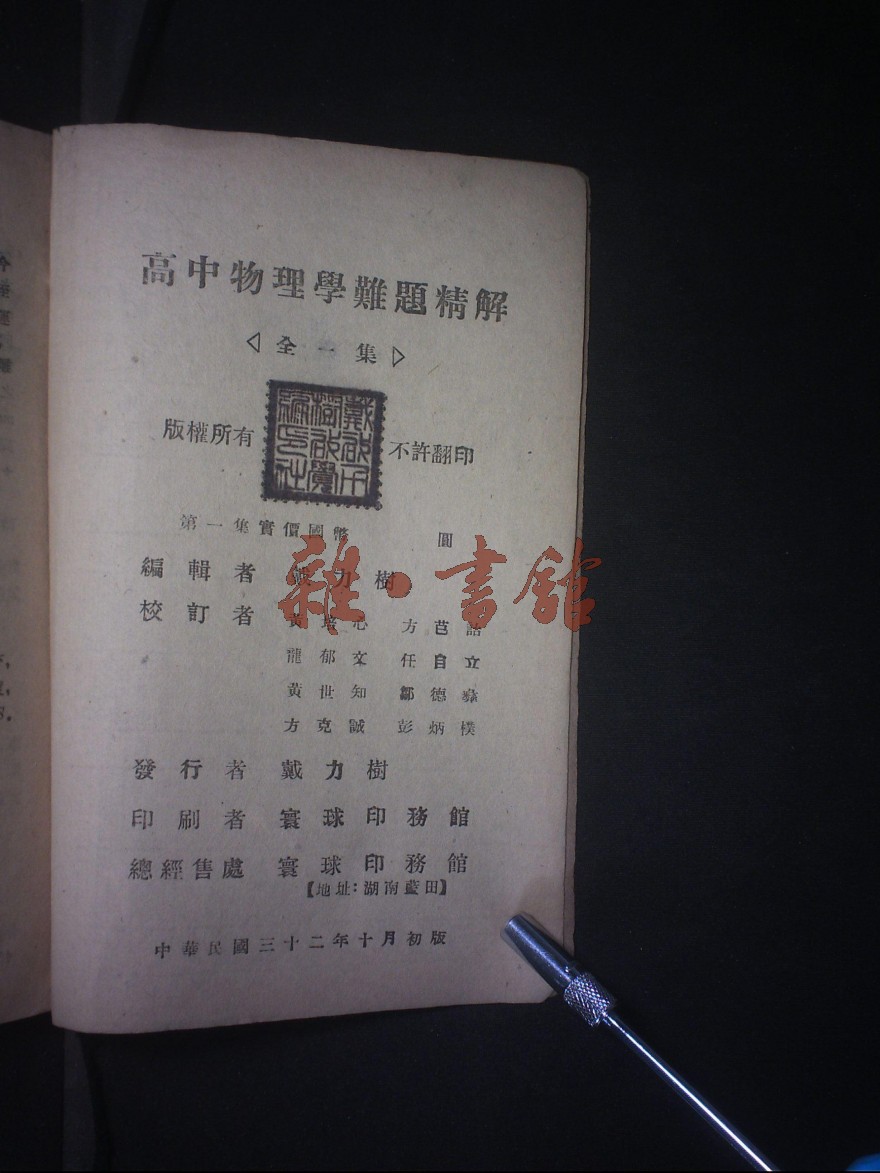 高中物理學難題精解
◁全一集▷
版權所有 不許翻印
第一集實價國幣 圓
編輯者 戴力樹
校訂者 黃培心 方芭喆
龍郁文 任自立
黃世知 鄒德彝
方克誠 彭炳樸
發行者 戴力樹
印刷者 寰球印務館
總經售處 寰球印務館
【地址:湖南藍田】
中華民國三十二年十月初版
雜·書館